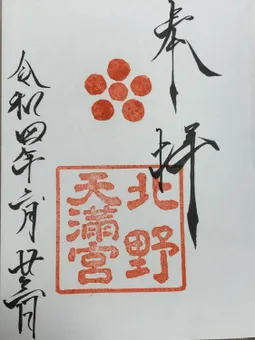 奉拝
北野
天満宮
令和四年 月廿三日